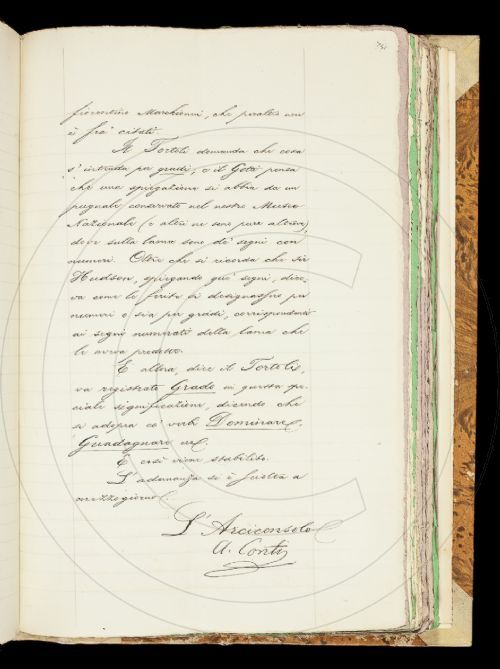 fiorentino Marchionni, che peraltro non
è fra' citati.
Il Tortoli domanda che cosa
s'intenda per gradi, e il Gotti pensa
che una spiegazione si abbia da un
pugnale conservato nel nostro Museo
Nazionale (e altri ne sono pure altrove),
dove sulla lama sono de' segni con
numeri. Oltre che si ricorda che Sir
Hudson, spiegando que' segni, dice-
va come le ferite si designassero per
numeri o sia per gradi, corrispondenti
ai segni numerati della lama che
le aveva prodotte.
E allora, dice il Tortoli,
va registrato Grado in questa spe-
ciale significazione, dicendo che
si adopra co' verbi Dominare,
Guadagnare ec.
E così viene stabilito.
L'adunanza si è sciolta a
mezzogiorno.
L'Arciconsolo
A. Conti